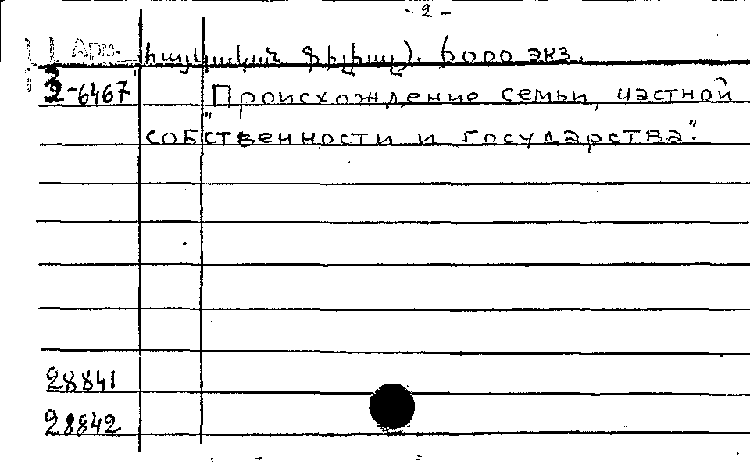 - 2 -
Арм. հայկական ֆիլիալ). 6000 экз.
2-6467 "Происхождение семьи, частной
собственности и государства".
28841
28842